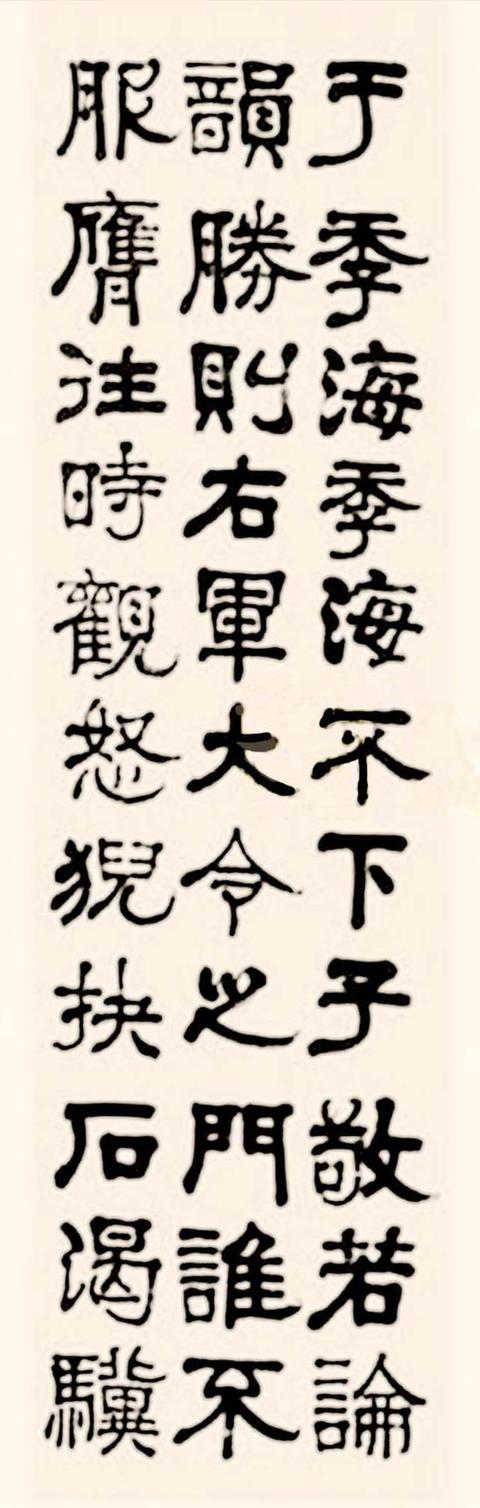 于季海季海不下子敬若論
韻勝則右軍大令之門誰不
服膺往時觀怒猊抉石渴驥